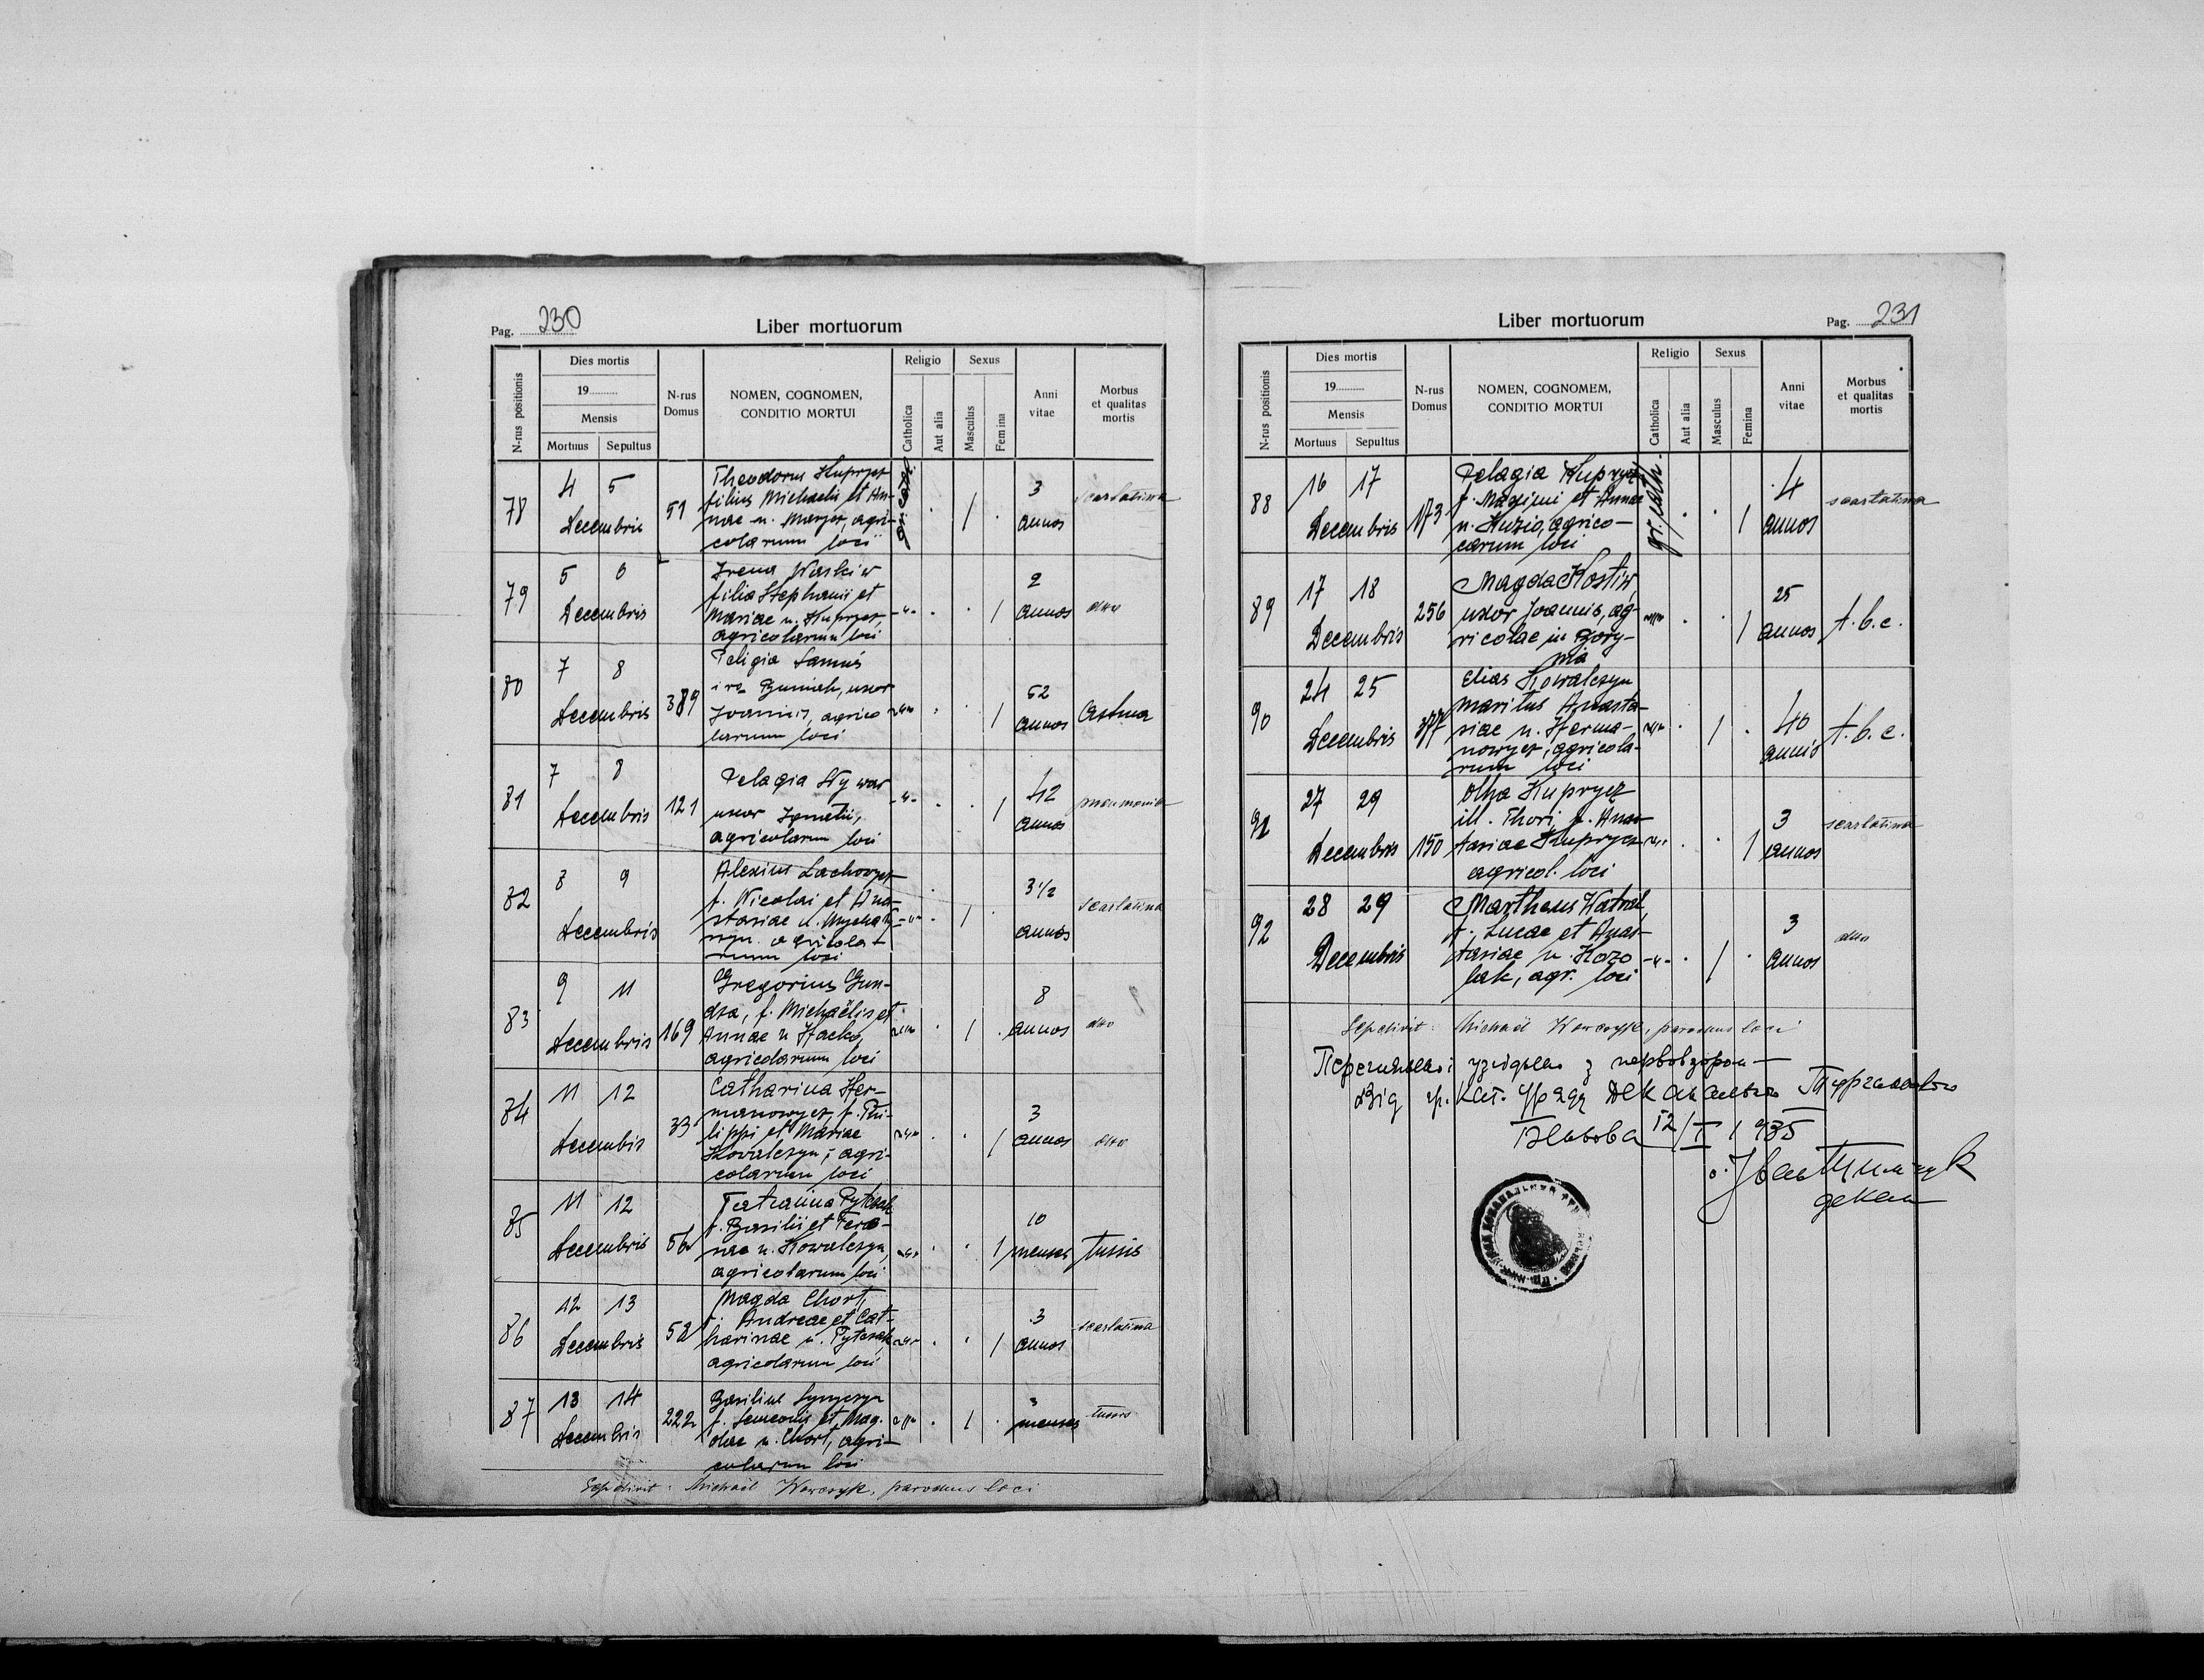 Pag. 230
Liber mortuorum
N-rus positionis
Dies mortis
19..........
Mensis
Mortuus
Sepultus
N-rus Domus
NOMEN, COGNOMEN,
CONDITIO MORTUI
Religio
Catholica
Aut alia
Sexus
Masculus
Femina
Anni vitae
Morbus
et qualitas
mortis
78
4 5
Decembris
51
Theodorus Kuprycz
filius Michaelis et An-
nae n. agri-
colarum loci
gr. cath.
3
annos
scarlatina
79
5 6
Decembris
Irena Waskiw
filia Stephani et
Mariae n. Kuprycz,
agricolarum loci
-"-
2
annos
80
7 8
Decembris
389
uxor
Joannis, agrico
larum loci
-"-
52
annos
Astma
81
7 8
Decembris
121
Pelagia Wywar
uxor
agricolarum loci
-"-
42
annos
pneumonia
82
8 9
Decembris
Alexius
f. Nicolai et Ana-
stasiae n.
agricola-
rum loci
-"-
3 1/2
annos
scarlatina
83
9 11
Decembris
169
Gregorius Gun-
dza, f. Michaëlis et
Annae n Hacko,
agricolarum loci
8
annos
84
11 12
Decembris
33
Catharina Her-
manowycz, f. Phi-
lippi et Mariae
Kowalczyn, agri-
colarum loci
3
annos
85
11 12
Decembris
56
Tatianna Pytczak
f. Basilii et
nae n. Kowalczyn,
agricolarum loci
10
menses
tussis
86
12 13
Decembris
52
Magda Chort,
f. Andreae et Cat-
harinae n. Pytczak
agricolarum loci
3
annos
scarlatina
87
13 14
Decembris
222
Basilius
f. Semeonis et Mag-
dae n. Chort, agri-
colarum loci
3
menses
tussis
Sepelivit: Michaël Warczyk, parochus loci
Liber mortuorum
Pag. 231
N-rus positionis
Dies mortis
19..........
Mensis
Mortuus
Sepultus
N-rus Domus
NOMEN, COGNOMEM,
CONDITIO MORTUI
Religio
Catholica
Aut alia
Sexus
Masculus
Femina
Anni vitae
Morbus
et qualitas
mortis
88
16 17
Decembris
173
Pelagia Kuprycz
f. Maximi et Annae
n. Huzio, agrico-
larum loci
gr. cath.
4
annos
scarlatina
89
17 18
Decembris
256
Magda Kostiw,
uxor Joannis, ag-
ricolae in
25
annos
t.b.c.
90
24 25
Decembris
377
Elias Kowalczyn
maritus Anasta-
siae n. Herma-
nowycz, agricola-
rum loci
40
annis
t.b.c.
91
27 29
Decembris
150
Olha Kuprycz
ill. Thori, f. Anas-
tasiae Kuprycz
agricol. loci
3
annos
scarlatina
92
28 29
Decembris
Mattheus
f. Lucae et Anas-
tasiae n. Kozo
lak, agr. loci
-"-
3
annos
Sepelivit: Michaël Warczyk, parochus loci
з первовзором
Від гр. кат. Уряду Деканального
12/I 1935
декан